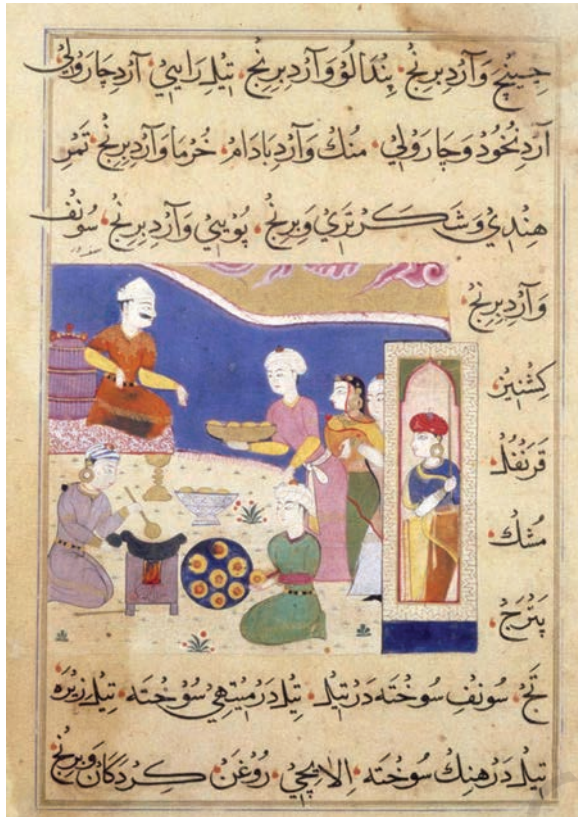 جینچ وَآردِ برنج، پندالُو وَآردِ برنج، تیلِ رایی، آردِ چارولی
آردِ نُخُود وَچارولی، منك وَآردِ بادام، خُرما وَآردِ برنج، تمر
هندی وَشکر تری وَبرنج، پویی وَآردِ برنج، سونف
وَآردِ برنج
کشنیز،
قرنفل،
مشك،
پترج،
تج، سونف سوخته در تیل، تیل در میتهی سوخته، تیل زیره
تیل در هنك سوخته، الایچی، روغن کردکان وَبرنج